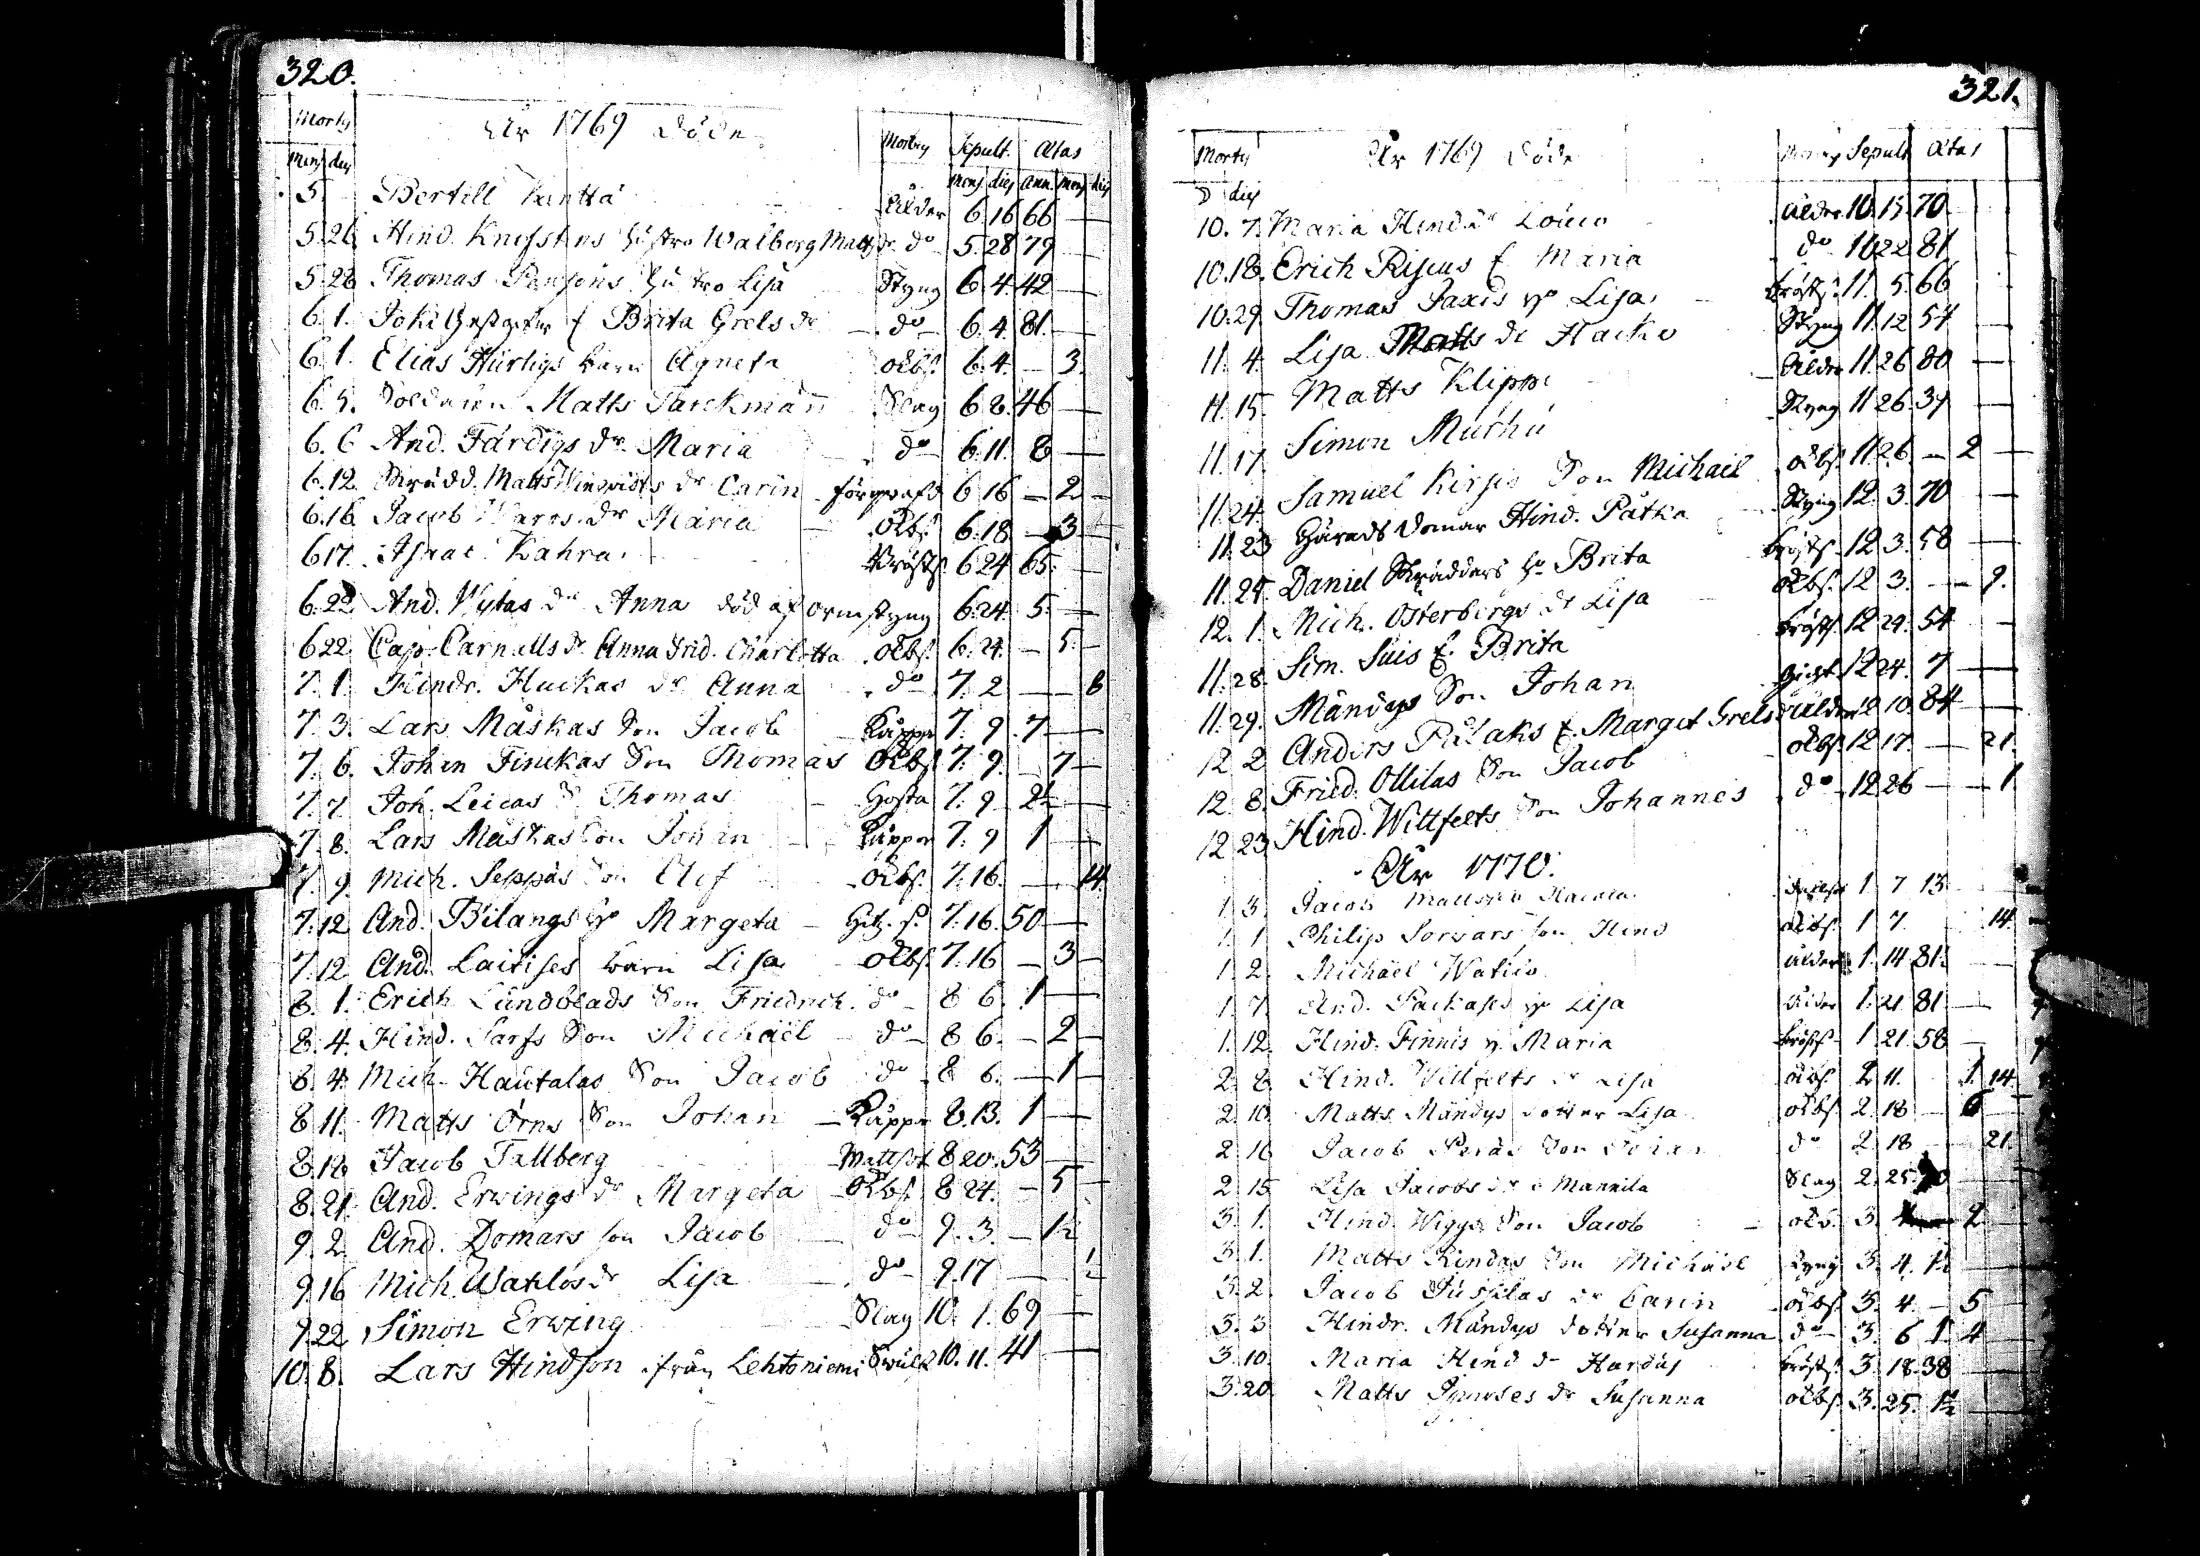 320.
Morty År 1769 Döde Morbus Sepult. Ætas
Mens dies Mens dies Ann. Mens dies
5. Bertill Ålder 6. 16 66 —
5. 26. Hind. hustro Walborg Matts dr do 5. 28 79 —
5. 28 Thomas hustro Lisa Styng 6. 4. 42 —
6. 1. f Brita Grels dr — do — 6. 4. 81. —
6. 1. Elias Hurtigs barn Agneta olbs. 6. 4. — 3.
6. 5. Soldaten Matts Starckmann Slag 6. 8. 46 —
6. 6 And. Färdigs dr Maria do — 6. 11. 8 —
6. 12. Skrädd. Matts dr Carin förqwafd 6 16 — 2 —
6. 16. Jacob dr Maria — olbs. 6. 18. — 3
6. 17. Isaac Kahra Bröstf. 6 24 65. —
6. 22. And. Wytas dr Anna död af ormstyng 6. 24. 5. —
6. 22. Cap. Carnalls dr Anna Frid. Charlotta olbs. 6. 24. — 5. —
7. 1. Hindr. Huikas dr Anna do 7. 2 — — 8
7. 3. Lars Måskas Son Jacob — Kåppor 7. 9. 7 —
7. 6. Johan Finckas Son Thomas olbs. 7. 9. — 7 —
7. 7. Joh. Leicas S. Thomas — Hosta 7. 9 2½ —
7. 8. Lars Måskas Son Johan — Kåppor 7. 9 1 —
7. 9. Mich. Seppäs Son Elef — olbs. 7. 16. — — 14.
7. 12 And. Bilangs ho Margeta — Hitz. s. 7. 16. 50 —
7. 12 And. Laitises barn Lisa olbs. 7. 16 — 3 —
8. 1. Erich Lundblads Son Friedrich. do — 8 6. 1 —
8. 4. Hind. Sarfs Son Michael — do — 8 6. — 2 —
8. 4. Mich. Hautalas Son Jacob do — 8 6. — 1 —
8 11. Matts Örns Son Johan — Kåppor 8. 13. 1 —
8. 16 Jacob Tallberg Mattsot 8 20. 53 —
8. 21. And. Erwings dr Margeta — olbs. 8 24. — 5 —
9. 2. And. Domars son Jacob — do — 9. 3. — 1½
9. 16 Mich. Waklos dr Lisa — do — 9. 17 — ½
9. 22 Simon Erwing Slag 10. 1. 69 —
10. 8. Lars Hindson från Lehtoniemi 10. 11. 41 —
321.
Morty År 1769 Döde Sepult Ætas
dies
10. 7. Maria Hinds dr Ålder 10. 15. 70
10. 18. Erich f. Maria do 10 22 81
10. 29. Thomas Jaxis ho Lisa — Bröstf. 11. 5. 66
11. 4. Lisa Matts dr Styng 11. 12 57
11. 15. Matts Klippi — Ålder 11. 26 80 —
11. 17. Simon Murhu — Styng 11 26. 37 —
11. 24. Samuel Kirsis Son Michael olbs. 11 26. — 2 —
11. 23 Härads Domar Hind. Pätka Styng 12. 3. 70 —
11. 24. Daniel Skrädders ho Brita Bröstf. 12 3. 58 —
12. 1. Mich. Österbergs dr Lisa olbs. 12 3. — — 9.
11. 28. Sim. Suis E. Brita Bröstf. 12 24. 54
11. 29. Mändys Son Johan Gickt 12 24. 7 —
12 2 Anders E. Marget Grels dr Ålder 12 10. 84 —
12 8. Fried. Ollilas Son Jacob olbs. 12 17. — 21.
12 23 Hind. Wittfelts Son Johannes do — 12 26 — — 1
År 1770.
1. 3. Jacob Mattson 1 7 15
1. 1 Philip Sorwars son Hind olbs. 1 7. 14.
1. 2. Michael Ålder 1. 14 81.
1. 7. And. ho Lisa Ålder 1. 21 81 —
1. 12. Hind. Finnis h. Maria Bröstf. 1 21. 58 —
2. 8. Hind. Wittfelts dr Lisa olbs. 2 11. 1. 14
2. 10. Matts Mändys dotter Lisa olbs. 2. 18 — 6 —
2. 16 Jacob Peräs Son Johan do 2. 18 — 21.
2. 15. Lisa Jacobs dr Mannila Slag 2. 25.
3. 1. Hind. Wiggs Son Jacob — olbs. 3. 4 — 2 —
3. 1. Matts Rindas Son Michael Styng 3. 4. 1½
3. 2. Jacob Jussilas dr Carin olbs. 3. 4. — 5 —
3. 3 Hindr. Mändys dotter Susanna do — 3. 6 1. 4
3. 10. Maria Hind dr Bröstf. 3. 18. 38
3. 20. Matts dr Susanna olbs. 3. 25. 1½